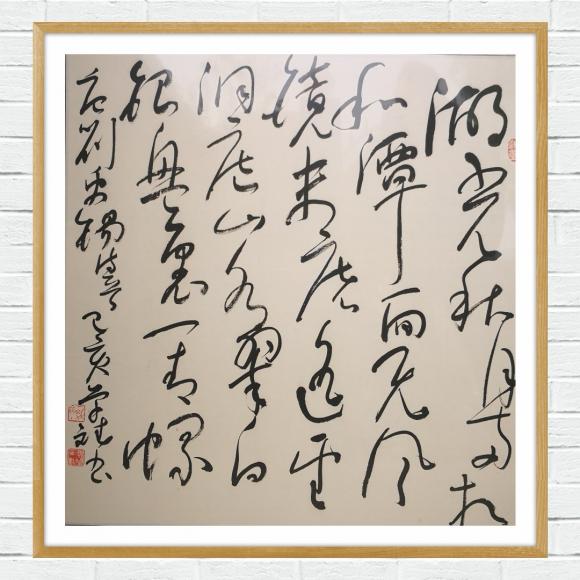 湖光秋月两相
和潭面无风
镜未磨遥望
洞庭山水翠白
银盘里一青螺
刘禹锡诗 己亥 书